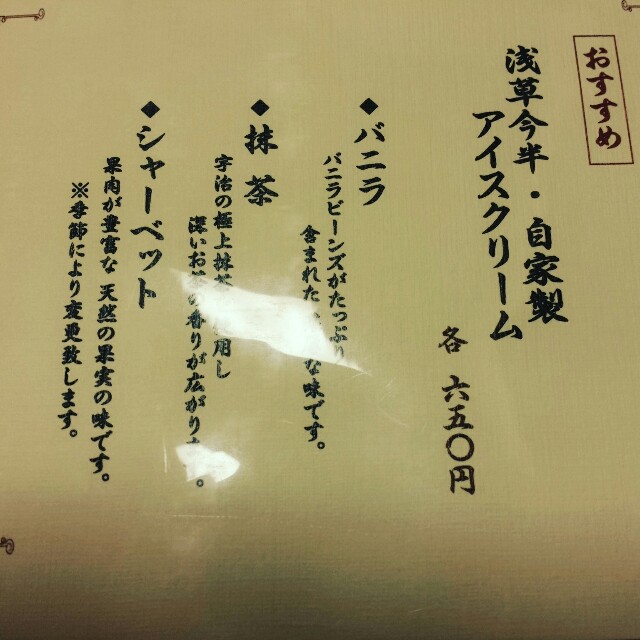 おすすめ
浅草今半・自家製
アイスクリーム
各 六五〇円
◆バニラ
バニラビーンズがたっぷり
含まれた な味です。
◆抹茶
宇治の極上抹茶 用し
深いお の香りが広がり 。
◆シャーベット
果肉が豊富な 天然の果実の味です。
※季節により変更致します。